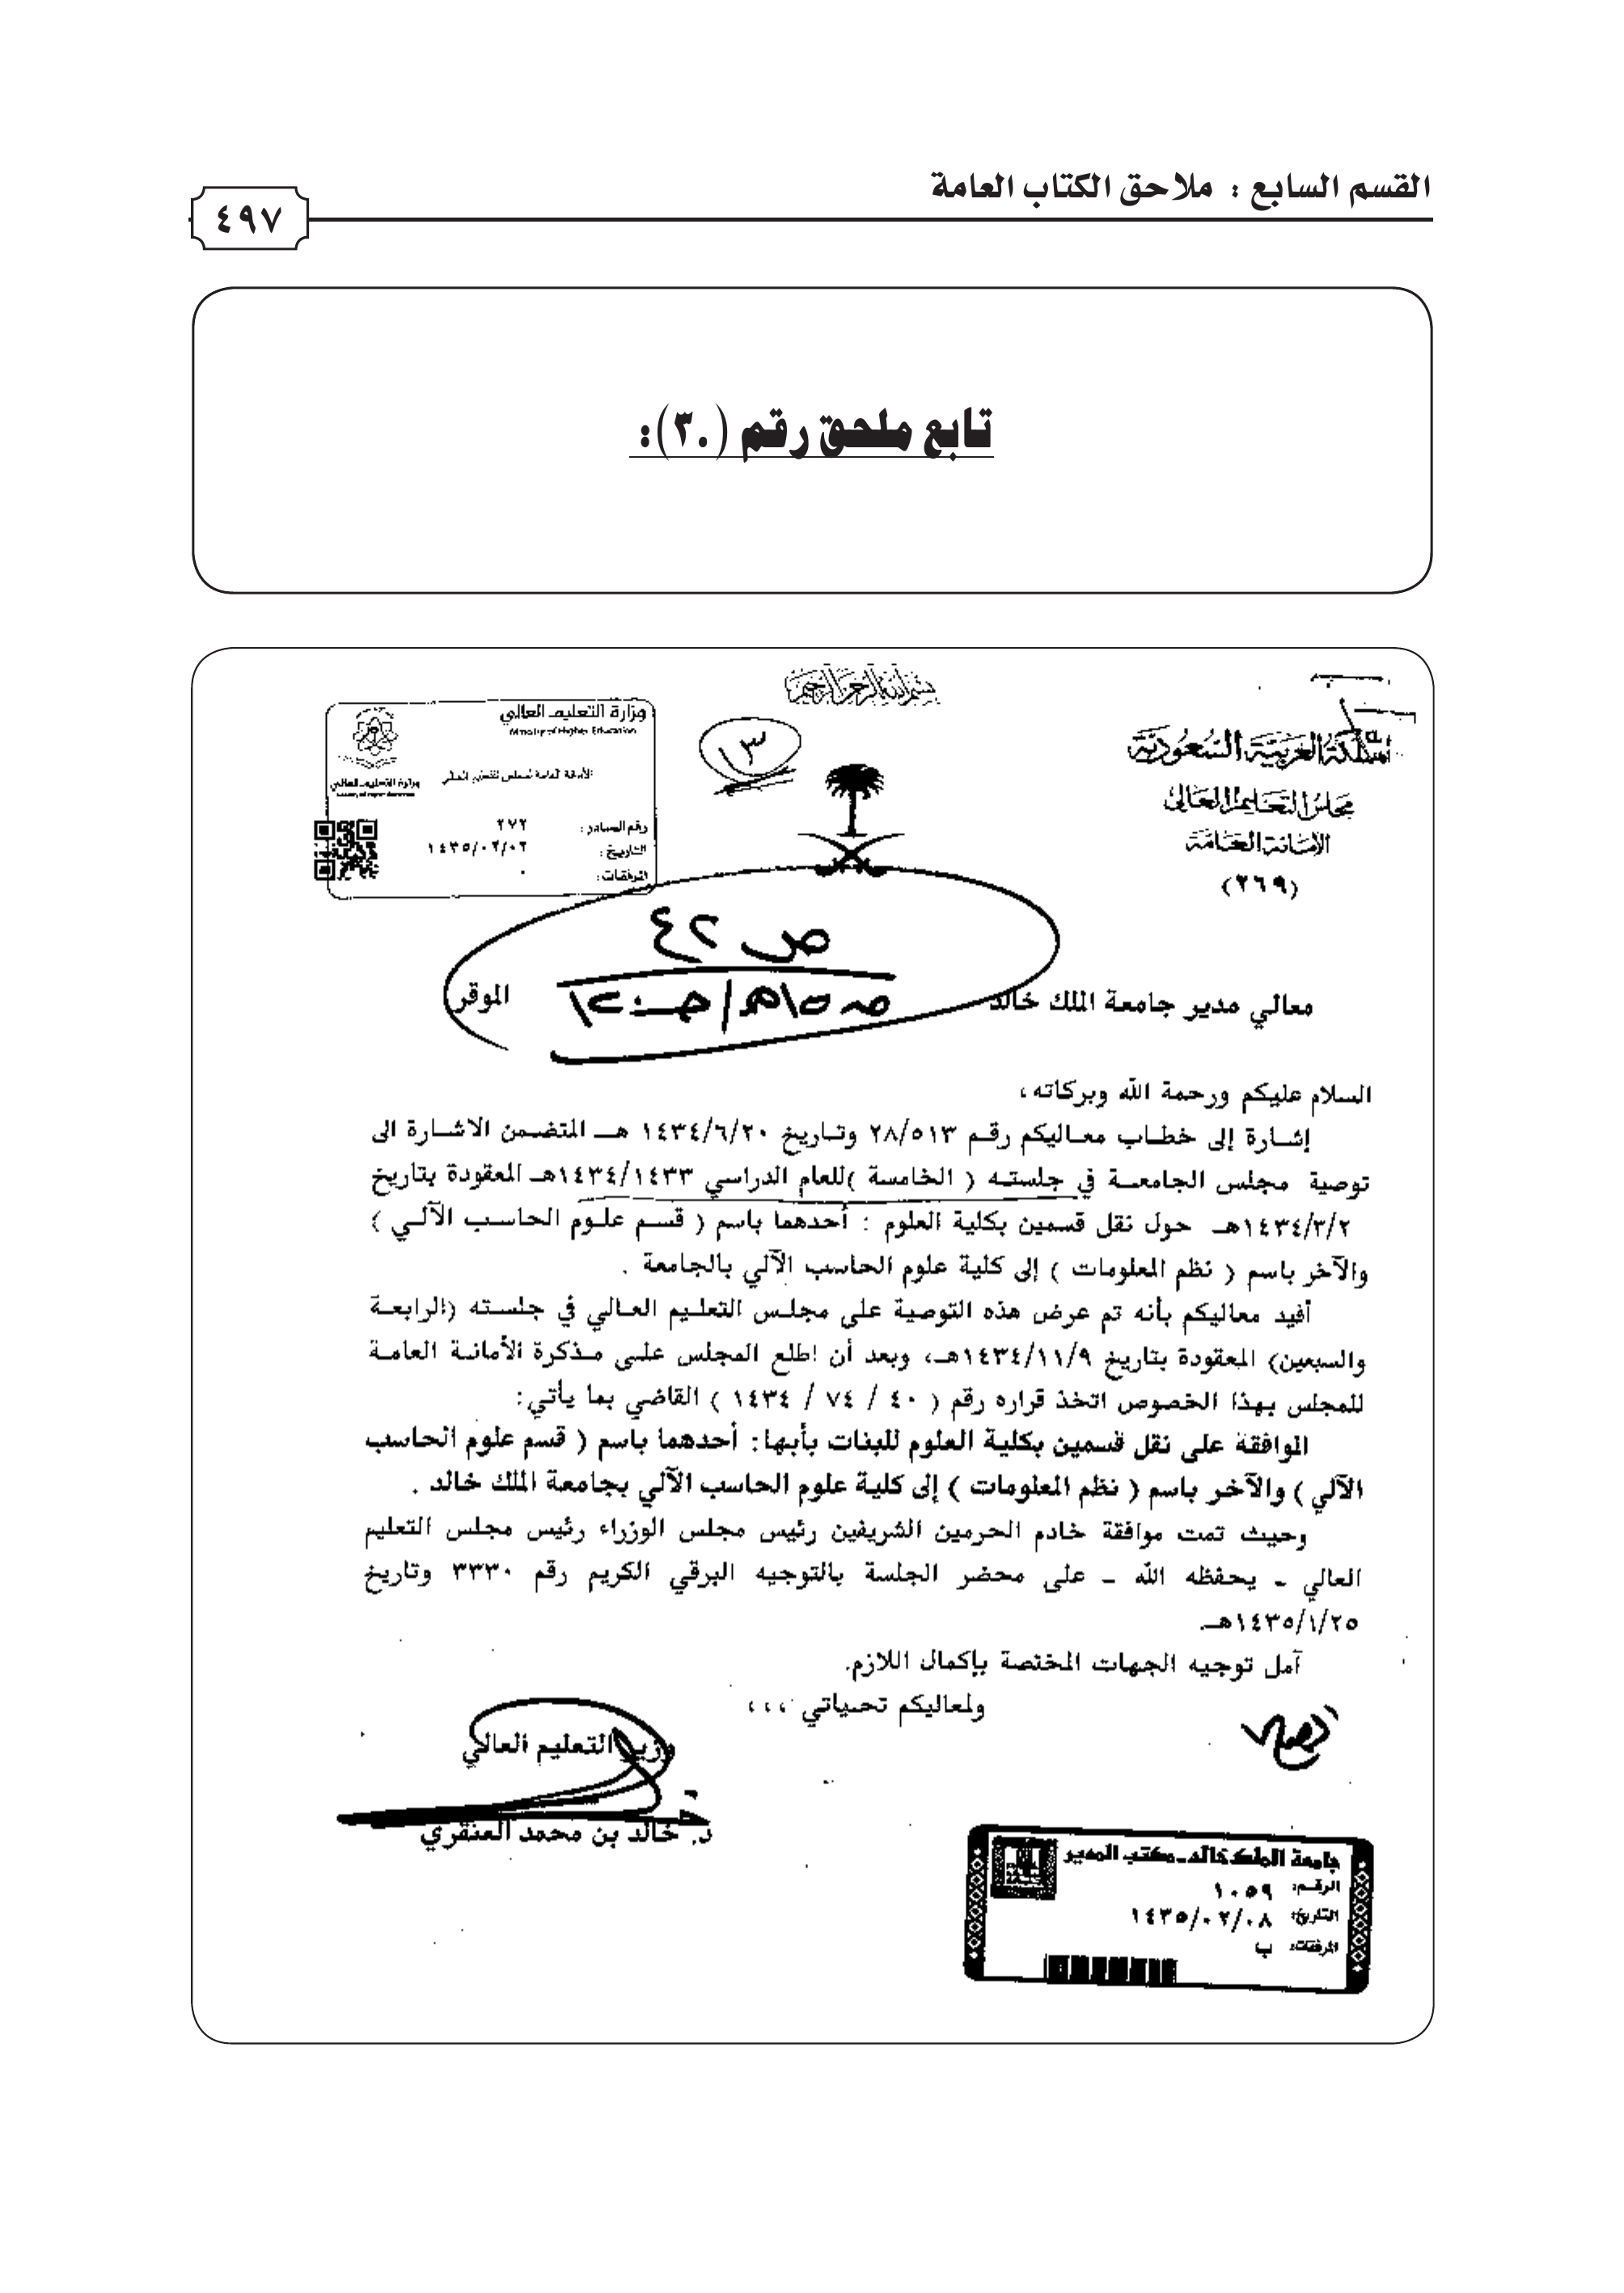 القسم السابع : ملاحق الكتاب العامة
٤٩٧
تابع ملحق رقم (٣٠):
بسم الله الرحمن الرحيم
المملكة العربية السعودية
مجلس التعليم العالي
الأمانة العامة
(٢٦٩)
١٣
وزارة التعليم العالي
Ministry of Higher Education
الأمانة العامة لمجلس التعليم العالي
وزارة التعليم العالي
رقم الصادر : ٢٧٢
التاريخ : ١٤٣٥/٠٢/٠٢
المرفقات : ٠
ص ٢٤
معالي مدير جامعة الملك خالد الموقر
السلام عليكم ورحمة الله وبركاته ،
إشارة إلى خطاب معاليكم رقم ٢٨/٥١٣ وتاريخ ١٤٣٤/٦/٢٠ هـ المتضمن الاشارة الى
توصية مجلس الجامعة في جلسته ( الخامسة )للعام الدراسي ١٤٣٤/١٤٣٣هـ المعقودة بتاريخ
١٤٣٤/٣/٢هـ حول نقل قسمين بكلية العلوم : أحدهما باسم ( قسم علوم الحاسب الآلي )
والآخر باسم ( نظم المعلومات ) إلى كلية علوم الحاسب الآلي بالجامعة .
أفيد معاليكم بأنه تم عرض هذه التوصية على مجلس التعليم العالي في جلسته (الرابعة
والسبعين) المعقودة بتاريخ ١٤٣٤/١١/٩هـ، وبعد أن اطلع المجلس على مذكرة الأمانة العامة
للمجلس بهذا الخصوص اتخذ قراره رقم ( ٤٠ / ٧٤ / ١٤٣٤ ) القاضي بما يأتي:
الموافقة على نقل قسمين بكلية العلوم للبنات بأبها: أحدهما باسم ( قسم علوم الحاسب
الآلي ) والآخر باسم ( نظم المعلومات ) إلى كلية علوم الحاسب الآلي بجامعة الملك خالد .
وحيث تمت موافقة خادم الحرمين الشريفين رئيس مجلس الوزراء رئيس مجلس التعليم
العالي ـ يحفظه الله ـ على محضر الجلسة بالتوجيه البرقي الكريم رقم ٣٣٣٠ وتاريخ
١٤٣٥/١/٢٥هـ.
آمل توجيه الجهات المختصة بإكمال اللازم.
ولمعاليكم تحياتي ،،،
وزير التعليم العالي
د. خالد بن محمد العنقري
جامعة الملك خالد - مكتب المدير
الرقم: ١٠٥٩
التاريخ: ١٤٣٥/٠٢/٠٨
المرفقات: ب